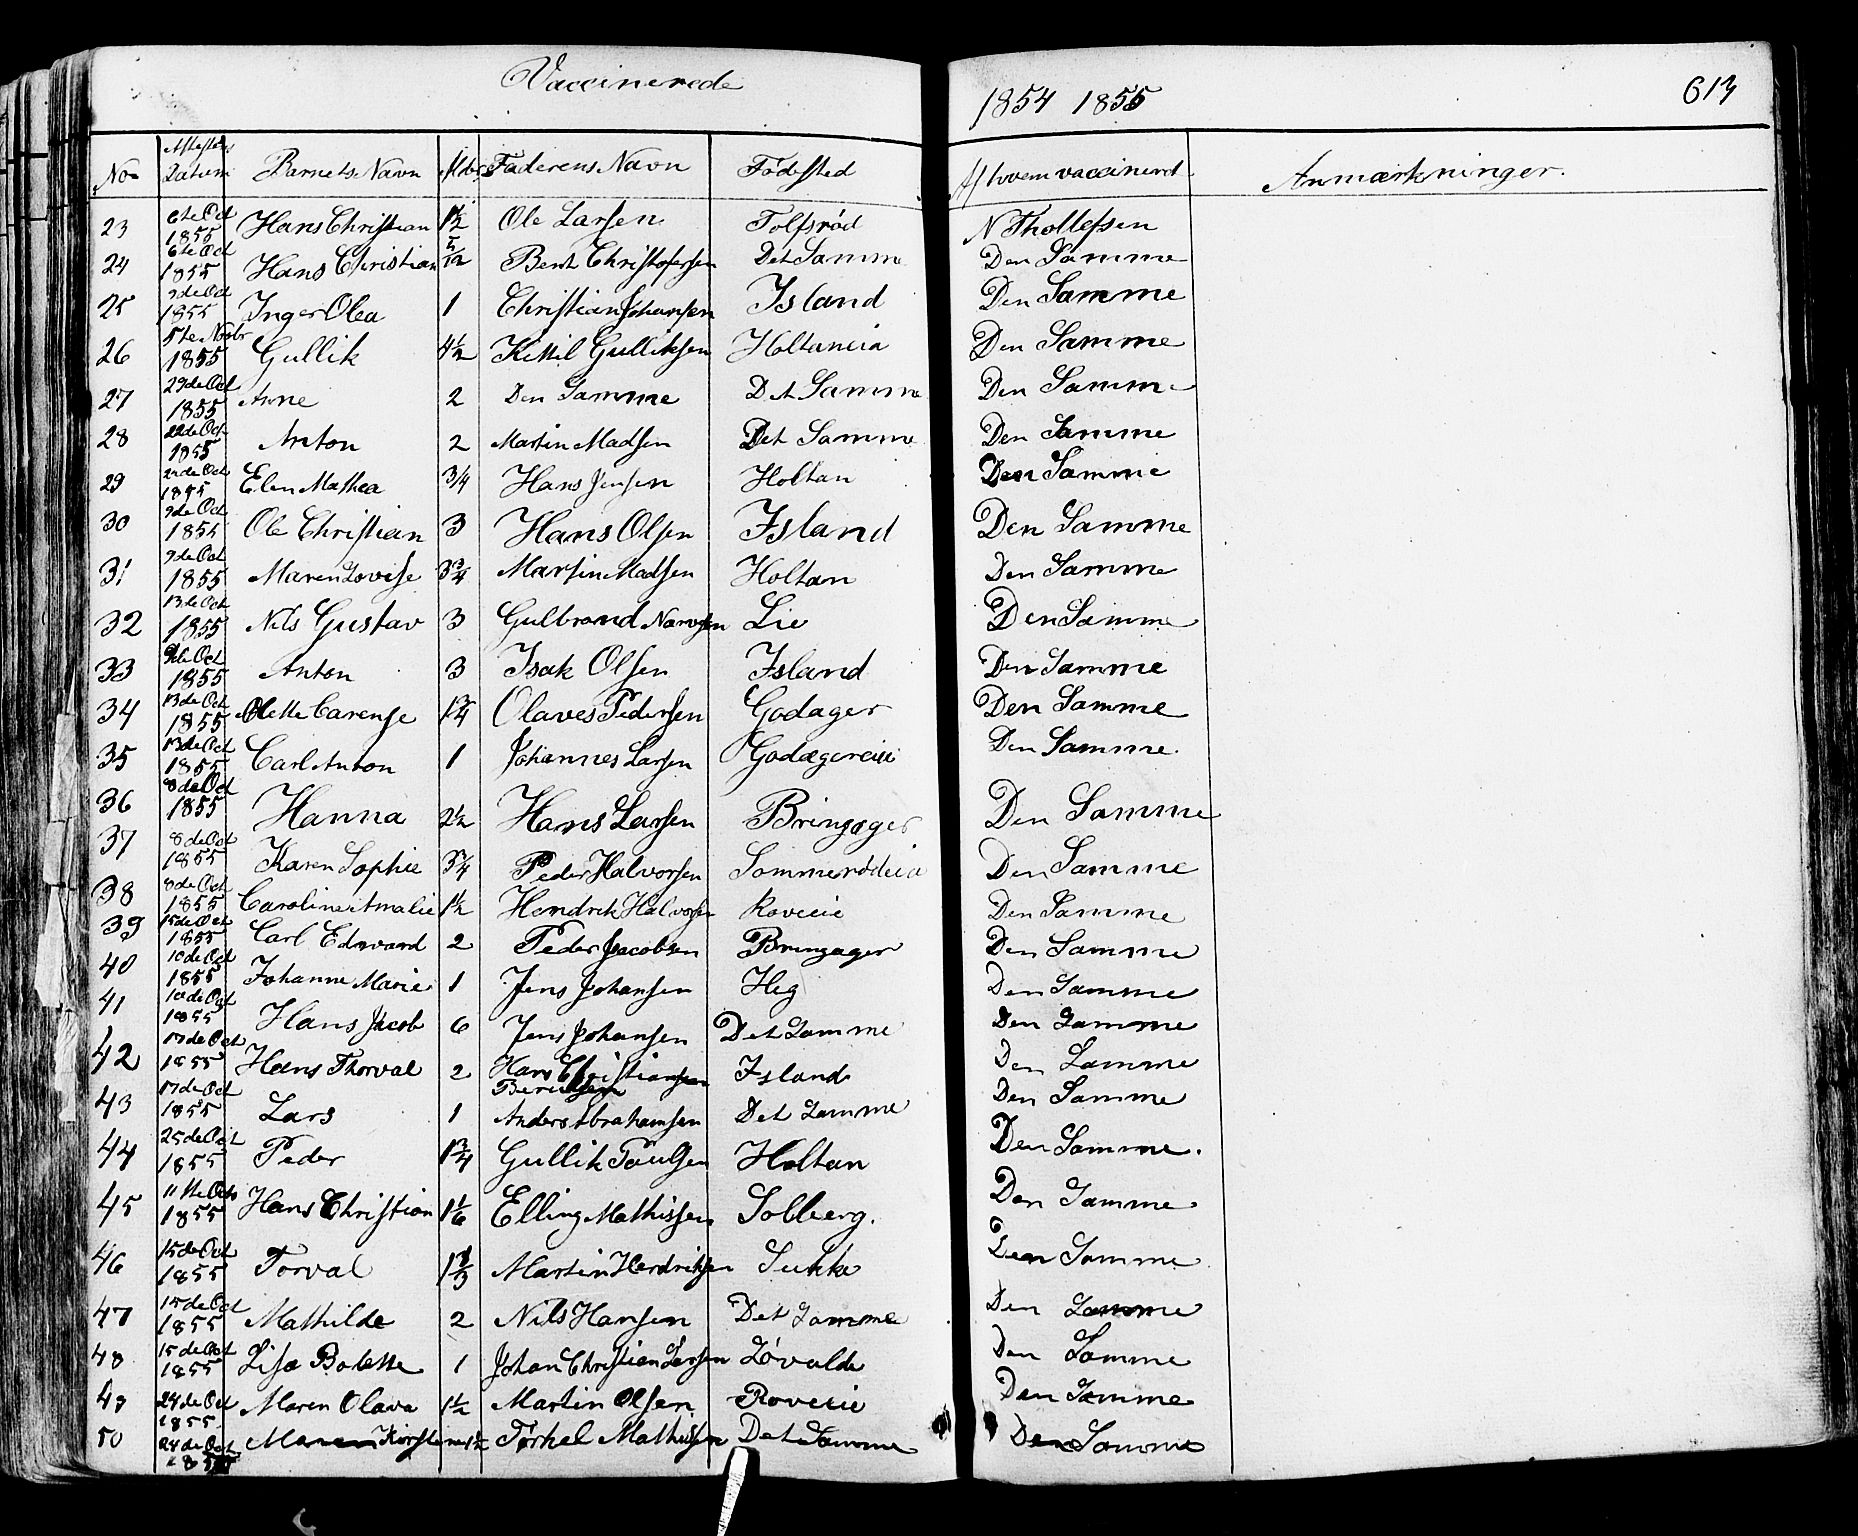 Vaccinerede 1854 1855 613
No Attestens Datum Barnets Navn Alder Faderens Navn Födested Af hvem vaccinered Anmærkninger.
23 6te Oct 1855 Hans Christian 1½ Ole Larsen Tolfsröd N Thollefsen
24 6te Oct 1855 Hans Christian 5/12 Bent Christofersen Det Samme Den Samme
25 9de Oct 1855 Inger Olea 1 Christian Johansen Island Den Samme
26 5te Novbr 1855 Gullik 4½ Kittil Gulliksen Holtaneia Den Samme
27 29de Oct 1855 Anne 2 Den Samme Det Samme Den Samme
28 22de Oct 1855 Anton 2 Martin Madsen Det Samme Den Samme
29 22de Oct 1855 Elen Mathea 3/4 Hans Jensen Holtan Den Samme
30 9de Oct 1855 Ole Christian 3 Hans Olsen Island Den Samme
31 9de Oct 1855 Maren Lovise 3¾ Martin Madsen Holtan Den Samme
32 13de Oct 1855 Nils Gustav 3 Gulbrand Lie Den Samme
33 Oct 1855 Anton 3 Isak Olsen Island Den Samme
34 13de Oct 1855 Olette Carense 1¾ Olaves Pedersen Godager Den Samme
35 13de Oct 1855 Carl Anton 1 Johannes Larsen Godagereiii Den Samme.
36 8de Oct 1855 Hanna 2½ Hans Larsen Bringager Den Samme
37 8de Oct 1855 Karen Sophie 3¾ Peder Halvorsen Sommerödeia Den Samme
38 8de Oct 1855 Caroline Amalie 1½ Hendrik Halvorsen Roveeie Den Samme
39 15de Oct 1855 Carl Edevard 2 Peder Jacobsen Bringager Den Samme
40 10de Oct 1855 Johanne Marie 1 Jens Johansen Heg Den Samme
41 10de Oct 1855 Hans Jacob 6 Jens Johansen Det Samme Den Samme
42 17de Oct 1855 Hans Thorval 2 Hans Christiansen Berntsen Island Den Samme
43 17de Oct 1855 Lars 1 Anders Abrahamsen Det Samme Den Samme
44 25de Oct 1855 Peder 1¾ Gullik Paulsen Holtan Den Samme.
45 11te Octo 1855 Hans Christian 1 1/6 Elling Mathissen Solberg. Den Samme
46 15de Oct 1855 Torval 1⅓ Martin Hendriksen Sukke Den Samme
47 15de Oct 1855 Mathilde 2 Nils Hansen Det Samme Den Samme
48 15de Oct 1855 Lisa Bolette 1 Johan Christian Larsen Lövalde Den Samme
49 24de Oct 1855 Maren Olava 1½ Martin Olsen Roveeie Den Samme
50 24de Oct 1855 Maren Kirstene 1½ Torkel Mathissen Det Samme Den Samme